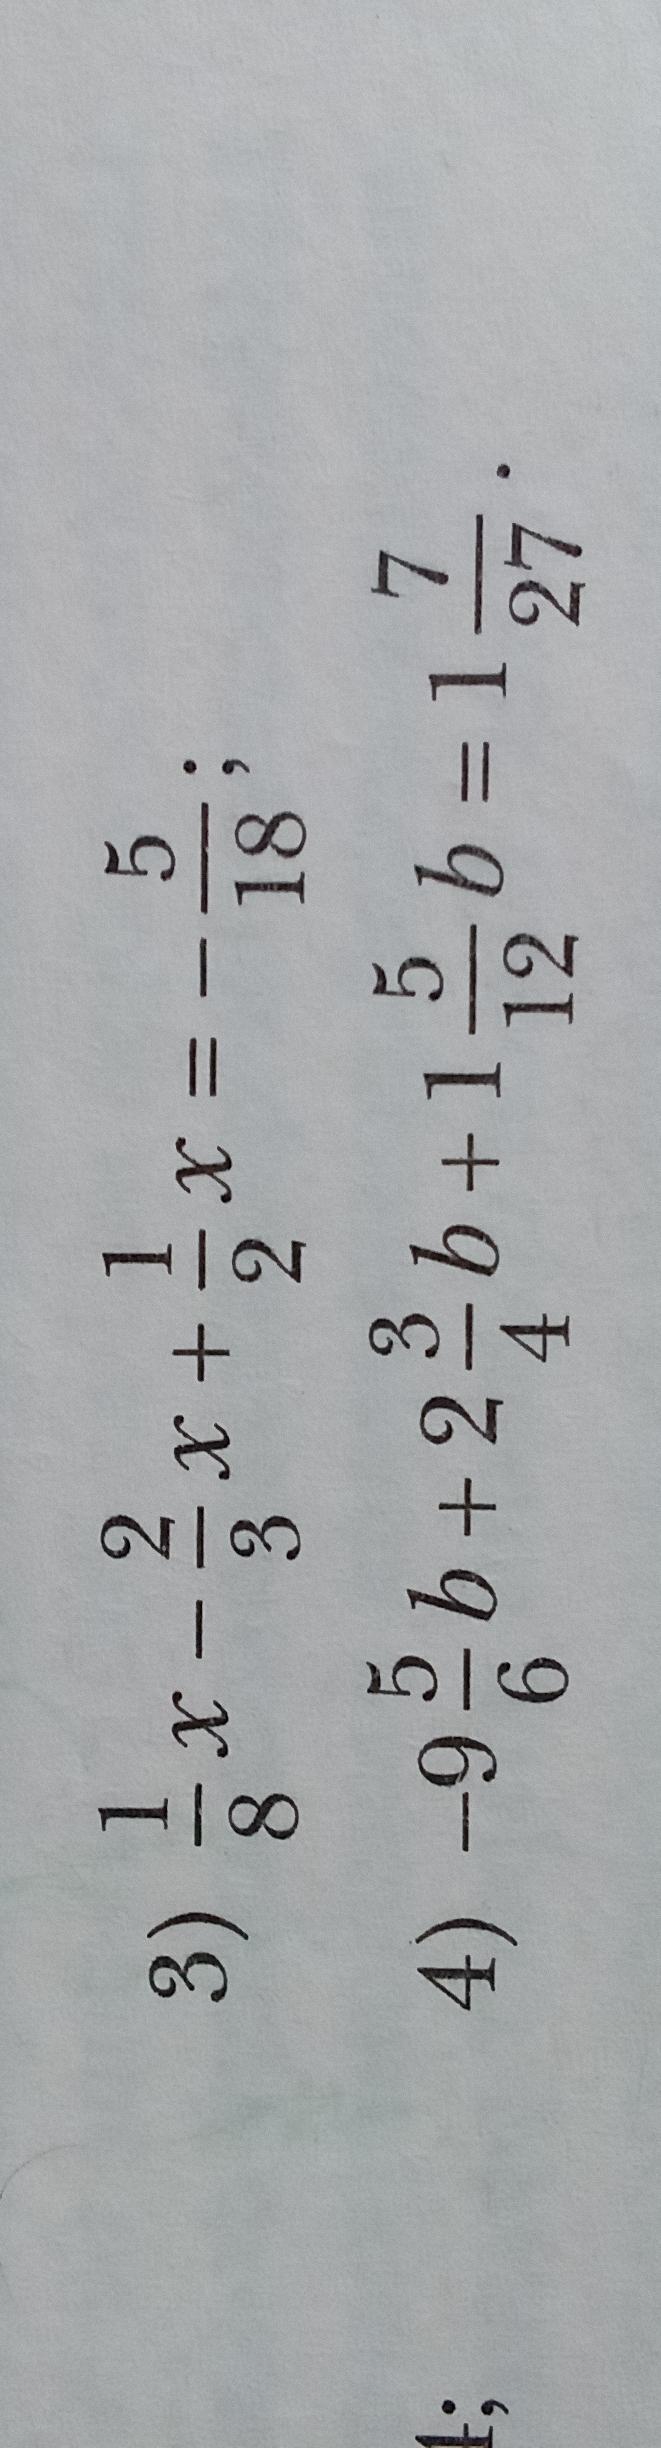 3) 1/8 x − 2/3 x + 1/2 x = − 5/18;
4) −9 5/6 b + 2 3/4 b + 1 5/12 b = 1 7/27.